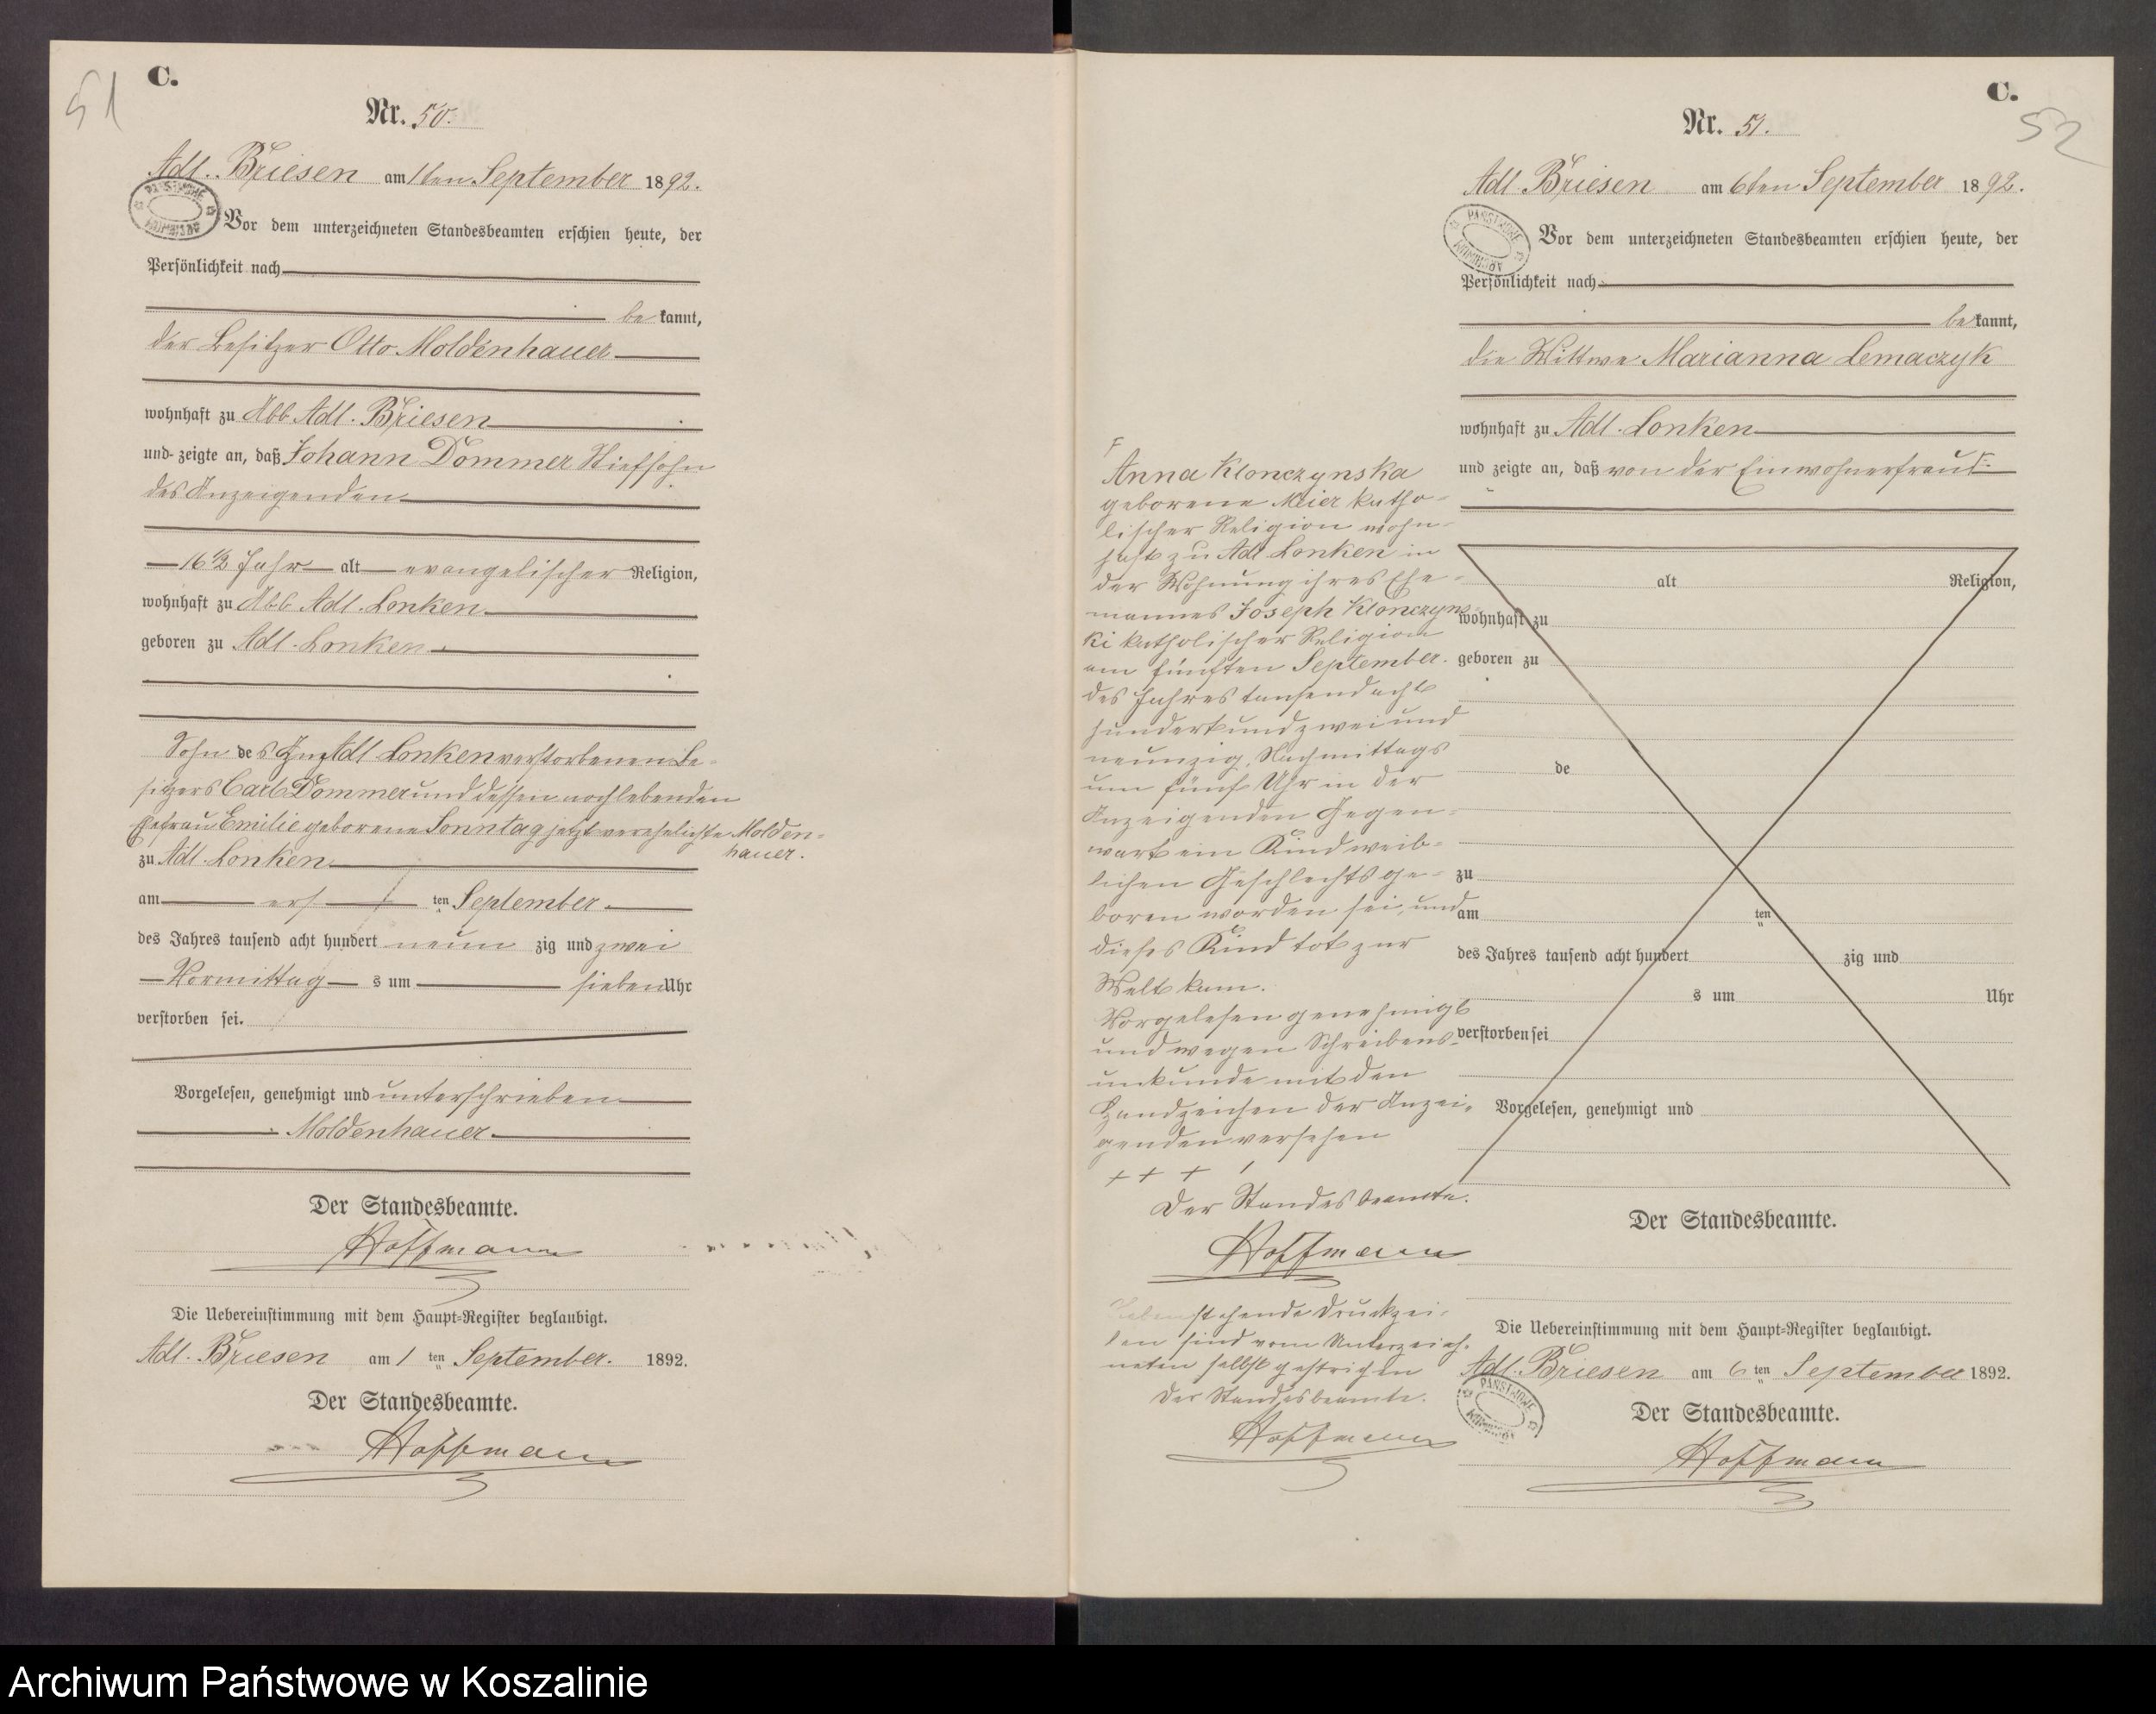 51
C.
Nr. 50.
Adl. Briesen am 1ten September 1892.
PAŃSTWOWE ARCHIWUM
Vor dem unterzeichneten Standesbeamten erschien heute, der
Persönlichkeit nach
be kannt,
der Besitzer Otto Moldenhauer
wohnhaft zu Abb. Adl. Briesen
und zeigte an, daß Johann Dommer Stiefsohn
des Anzeigenden
16 1/2 Jahr alt evangelischer Religion,
wohnhaft zu Abb. Adl. Lonken
geboren zu Adl. Lonken
Sohn des zu Adl Lonken verstorbenen Be-
sitzers Carl Dommer und dessen noch lebenden
Ehefrau Emilie geborene Sonntag jetzt verehelichte Molden-
hauer.
zu Adl. Lonken
am ers ten September
des Jahres tausend acht hundert neun zig und zwei
Vormittag s um sieben Uhr
verstorben sei.
Vorgelesen, genehmigt und unterschrieben
Moldenhauer
Der Standesbeamte.
Hoffmann
Die Uebereinstimmung mit dem Haupt-Register beglaubigt.
Adl. Briesen am 1 ten September. 1892.
Der Standesbeamte.
Hoffmann
C.
52
Nr. 51.
Adl. Briesen am 6ten September 1892.
PAŃSTWOWE ARCHIWUM
Vor dem unterzeichneten Standesbeamten erschien heute, der
Persönlichkeit nach
be kannt,
die Wittwe Marianna Lemaczyk
wohnhaft zu Adl. Lonken
und zeigte an, daß von der Einwohnerfrau F
F
Anna Klonczynska
geborene Meier katho-
lischer Religion wohn-
haft zu Adl Lonken in
der Wohnung ihres Ehe-
mannes Joseph Klonczyns-
ki katholischer Religion
am fünften September
des Jahres tausend acht
hundert und zwei und
neunzig, Nachmittags
um fünf Uhr in der
Anzeigenden Gegen-
wart ein Kind weib-
lichen Geschlechts ge-
boren worden sei, und
dieses Kind tot zur
Welt kam.
Vorgelesen genehmigt
und wegen Schreibens-
unkunde mit den
Handzeichen der Anzei-
genden versehen
+ + +
Der Standesbeamte.
Hoffmann
Nebenstehende Druckzei-
len sind vom Unterzeich-
neten selbst gestrichen
Der Standesbeamte.
Hoffmann
alt Religion,
wohnhaft zu
geboren zu
de
zu
am ten
des Jahres tausend acht hundert zig und
s um Uhr
verstorben sei
Vorgelesen, genehmigt und
Der Standesbeamte.
Die Uebereinstimmung mit dem Haupt-Register beglaubigt.
Adl. Briesen am 6 ten September 1892.
PAŃSTWOWE ARCHIWUM
Der Standesbeamte.
Hoffmann
Archiwum Państwowe w Koszalinie